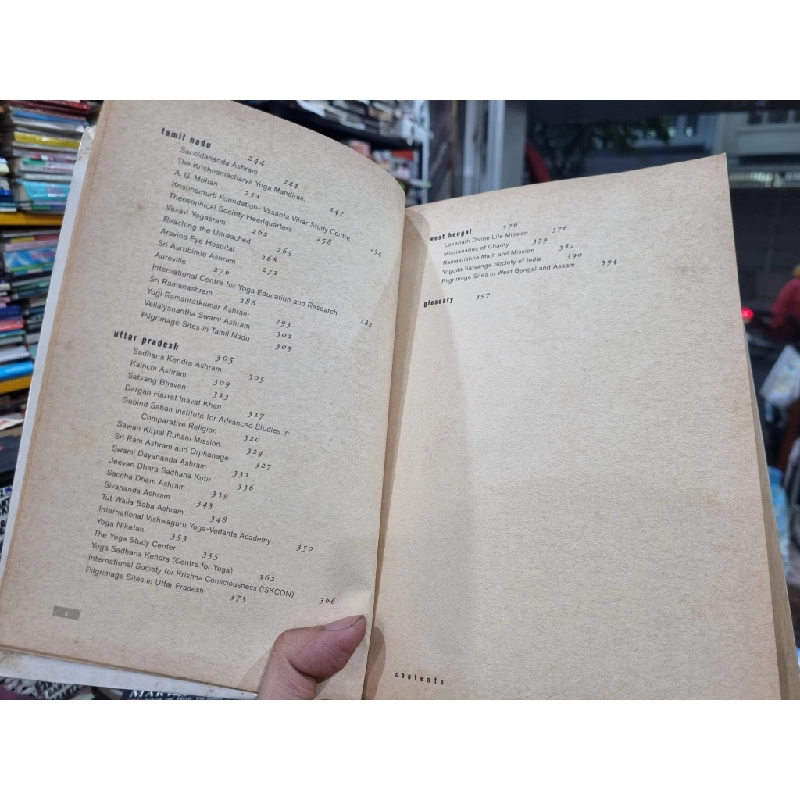 tamil nadu 244
Saccidananda Ashram 244
The Krishnamacharya Yoga Mandiram 247
A. G. Mohan 252
Krishnamurti Foundation–Vasanta Vihar Study Centre 254
Theosophical Society Headquarters 258
Vasavi Yogasram 262
Reaching the Unreached 265
Aravind Eye Hospital 268
Sri Aurobindo Ashram 272
Auroville 276
International Centre for Yoga Education and Research 283
Sri Ramanashram 286
Yogi Ramsuratkumar Ashram 293
Vallalyanantha Swami Ashram 302
Pilgrimage Sites in Tamil Nadu 303
uttar pradesh 305
Sadhana Kendra Ashram 305
Kainchi Ashram 309
Satsang Bhavan 313
Dargah Hazrat Inayat Khan 317
Gobind Sadan Institute for Advanced Studies in
Comparative Religion 320
Sawan Kirpal Ruhani Mission 324
Sri Ram Ashram and Orphanage 327
Swami Dayananda Ashram 332
Jeevan Dhara Sadhana Kutir 336
Saccha Dham Ashram 339
Sivananda Ashram 343
Tat Wale Baba Ashram 348
International Vishwaguru Yoga-Vedanta Academy 350
Yoga Niketan 353
The Yoga Study Center 355
Yoga Sadhana Kendra (Centre for Yoga) 362
International Society for Krishna Consciousness (ISKCON) 366
Pilgrimage Sites in Uttar Pradesh 373
west bengal 376
Lokenath Divine Life Mission 376
Missionaries of Charity 379
Ramakrishna Math and Mission 382
Yogoda Satsanga Society of India 390
Pilgrimage Sites in West Bengal and Assam 394
glossary 397
contents